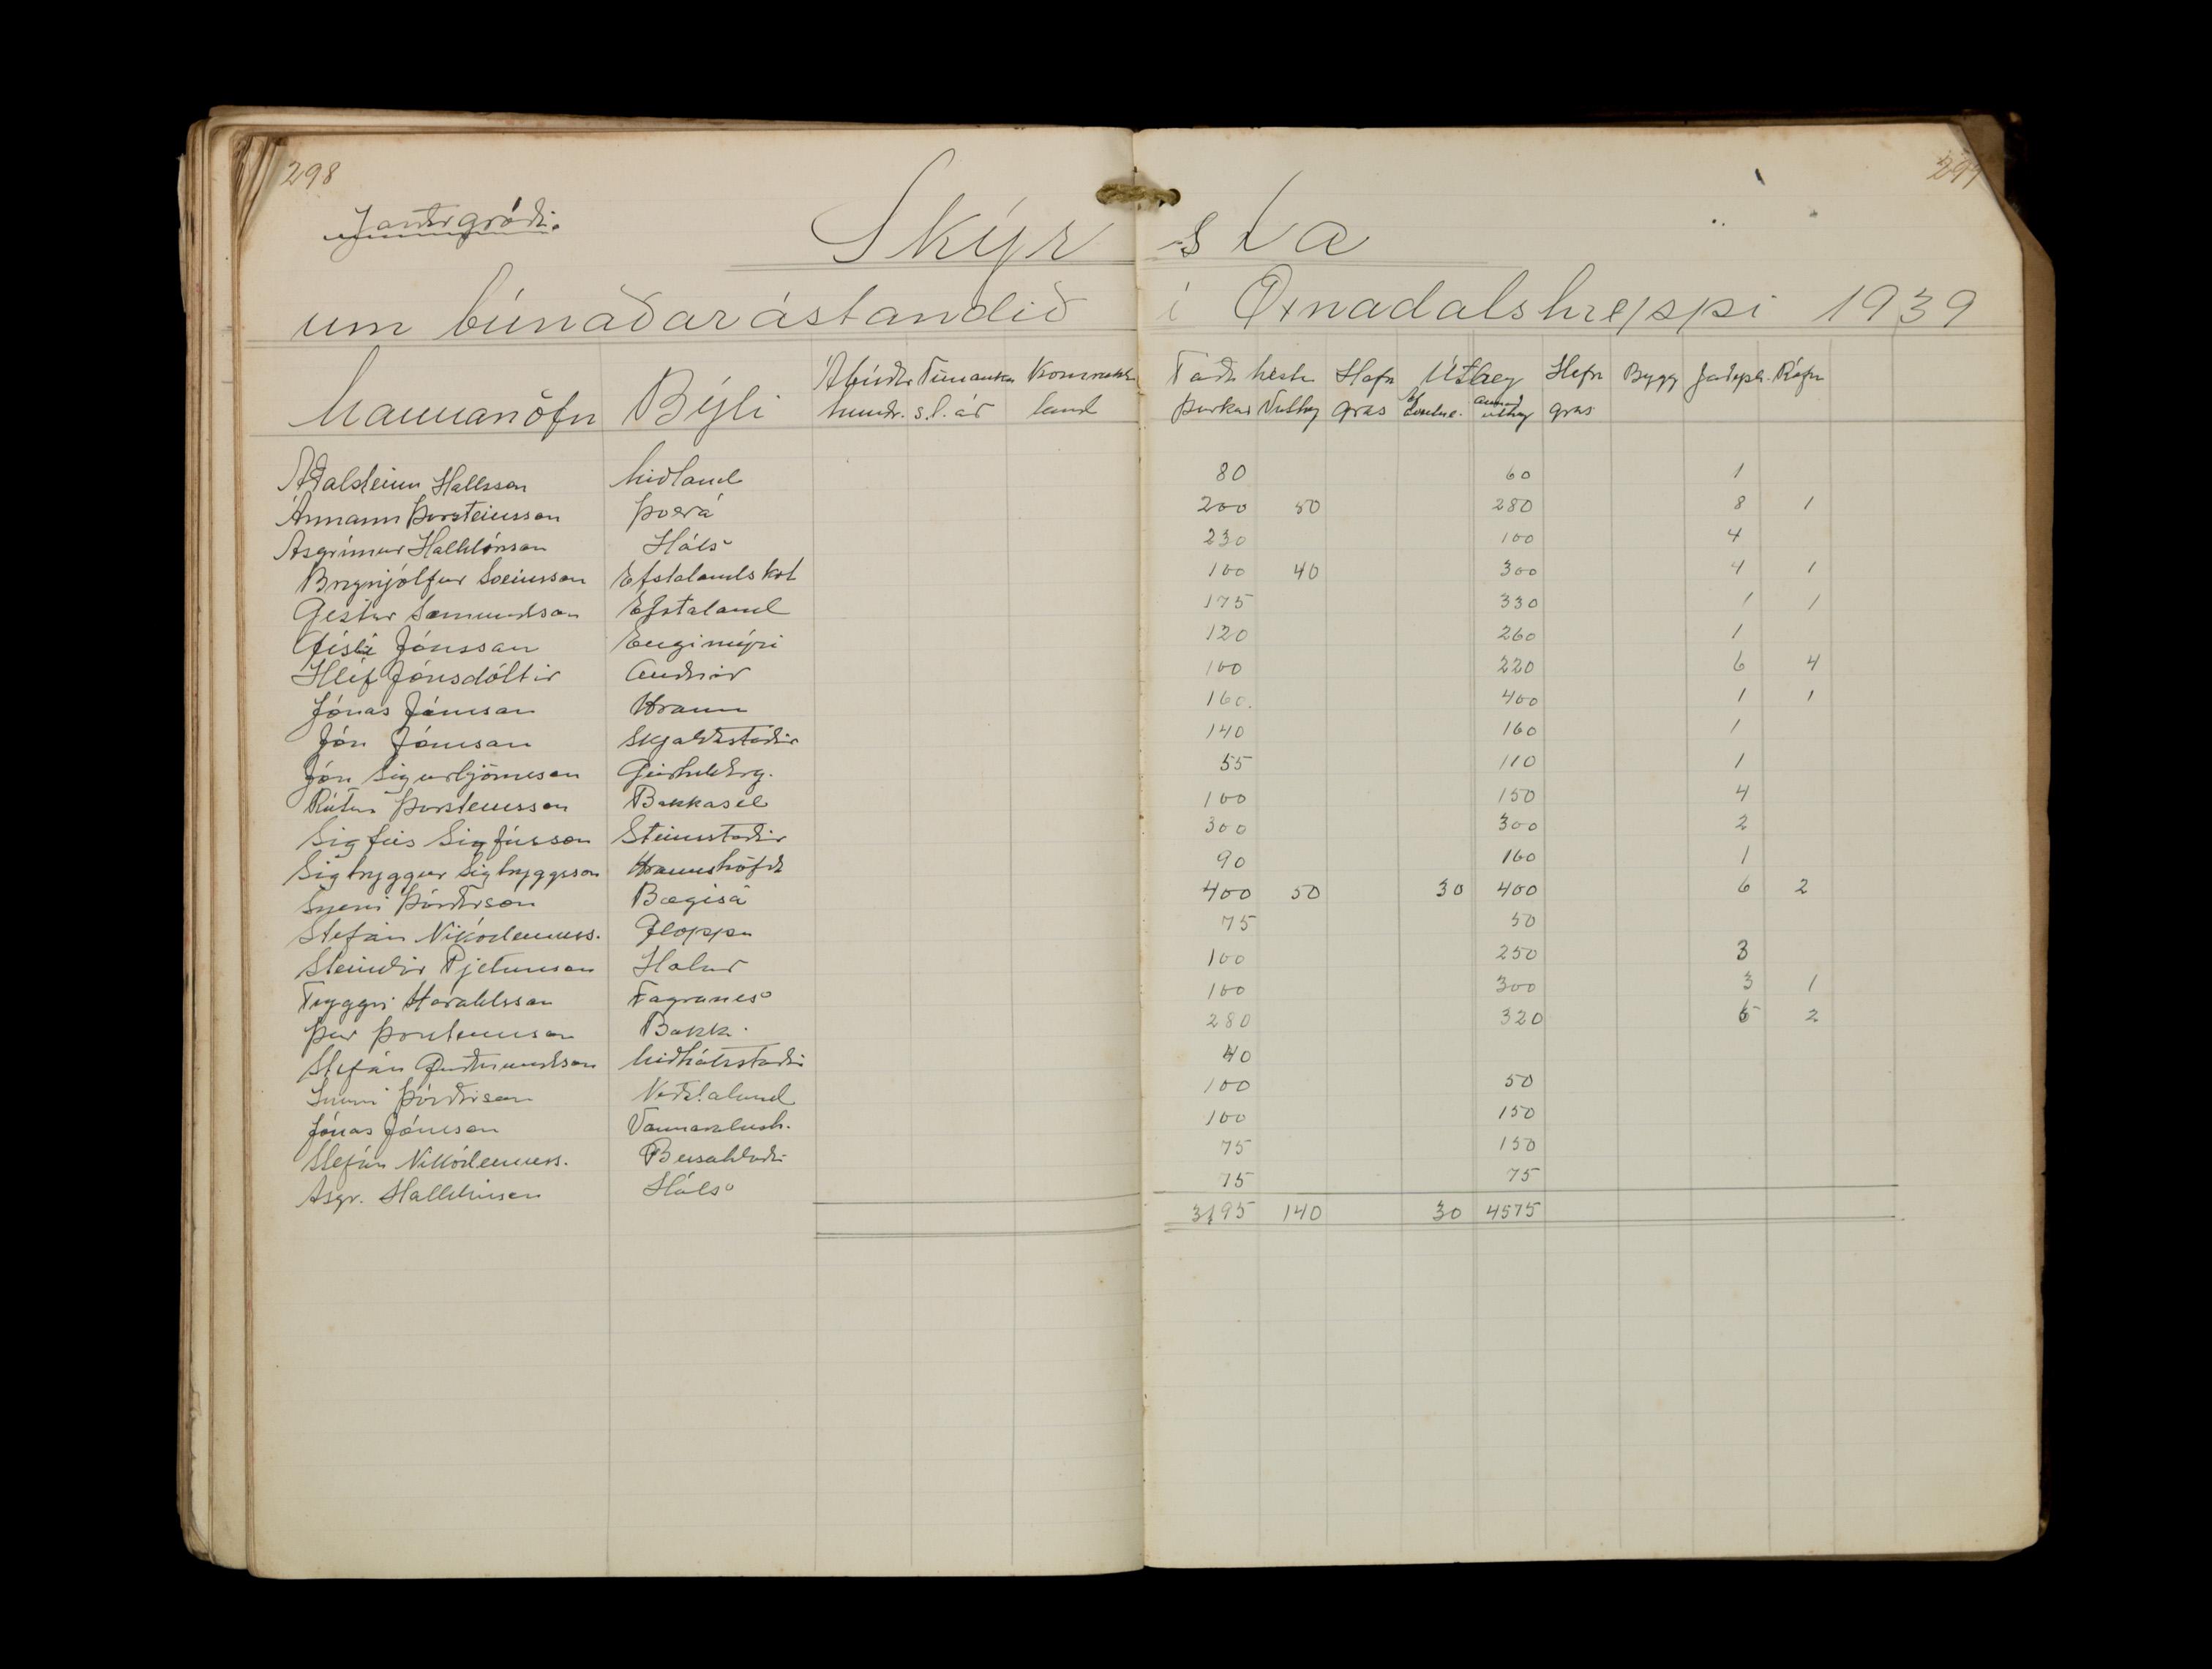 298
299
Jarðargróði.
Skýrsla
um búnaðarástandið í Öxnadalshreppi 1939
Mannanöfn Býli Ábúðar hundr. Túnauki s.l. ár land Taða hestar Þurkað Vothey Hafra gras Úthey annað úthey Hafra gras Bygg Jarðepli Rófur
Aðalsteinn Hallsson Miðland 80 60 1
Ármann Þorsteinsson Þverá 200 50 280 8 1
Ásgrímur Halldórsson Háls 230 100 4
Brynjólfur Sveinsson Efstalandskot 100 40 300 4 1
Gestur Sæmundsson Efstaland 175 330 1 1
Gísli Jónsson Engimýri 120 260 1
Hlíf Jónsdóttir Auðnir 100 220 6 4
Jónas Jónsson Hraun 160. 400 1 1
Jón Jónsson Skjaldastaðir 140 160 1
Jón Sigurbjörnsson Geirhildarg. 55 110 1
Rútur Þorsteinsson Bakkasel 100 150 4
Sigfús Sigfússon Steinsstaðir 300 300 2
Sigtryggur Sigtryggsson Hraunshöfði 90 160 1
Snorri Þórðarson Bægisá 400 50 30 400 6 2
Stefán Nikódemuss. Gloppa 75 50
Steindór Pjetursson Hólar 100 250 3
Tryggvi Haraldsson Fagranes 100 300 3 1
Þór Þorsteinsson Bakki 280 320 6 2
Stefán Guðmundsson Miðhálsstaðir 40
Snorri Þórðarson Neðstaland 100 50
Jónas Jónsson Varmavatnsh. 100 150
Stefán Nikódemuss. Bessahlaði 75 150
Ásgr. Halldórsson Háls 75 75
3195 140 30 4575